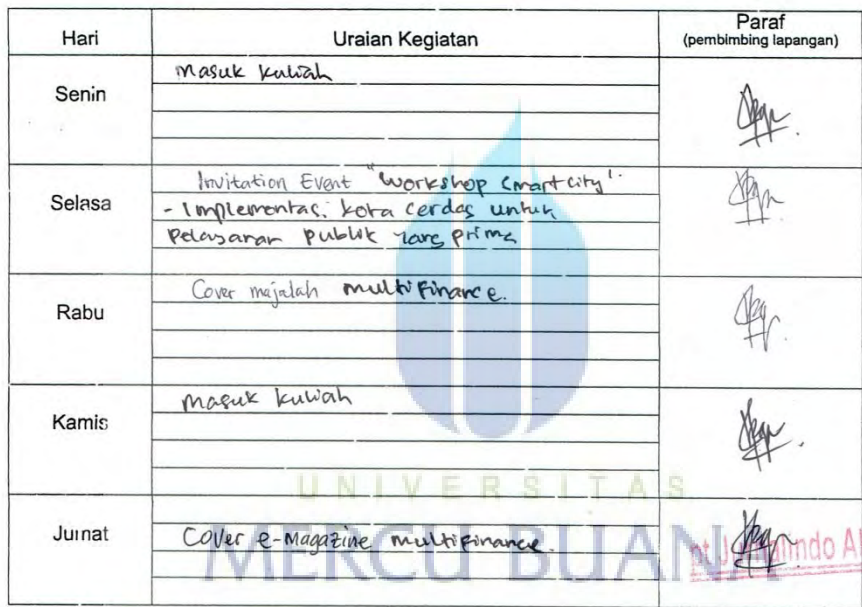 Hari Uraian Kegiatan Paraf
(pembimbing lapangan)
Senin
Masuk kuliah
Selasa
Invitation Event "Workshop Smart city".
- Implementasi kota cerdas untuk
Pelayanan publik yang prima
Rabu
Cover majalah multifinance.
Kamis
Masuk kuliah
Jumat
Cover e-Magazine multifinance.
UNIVERSITAS
MERCU BUANA